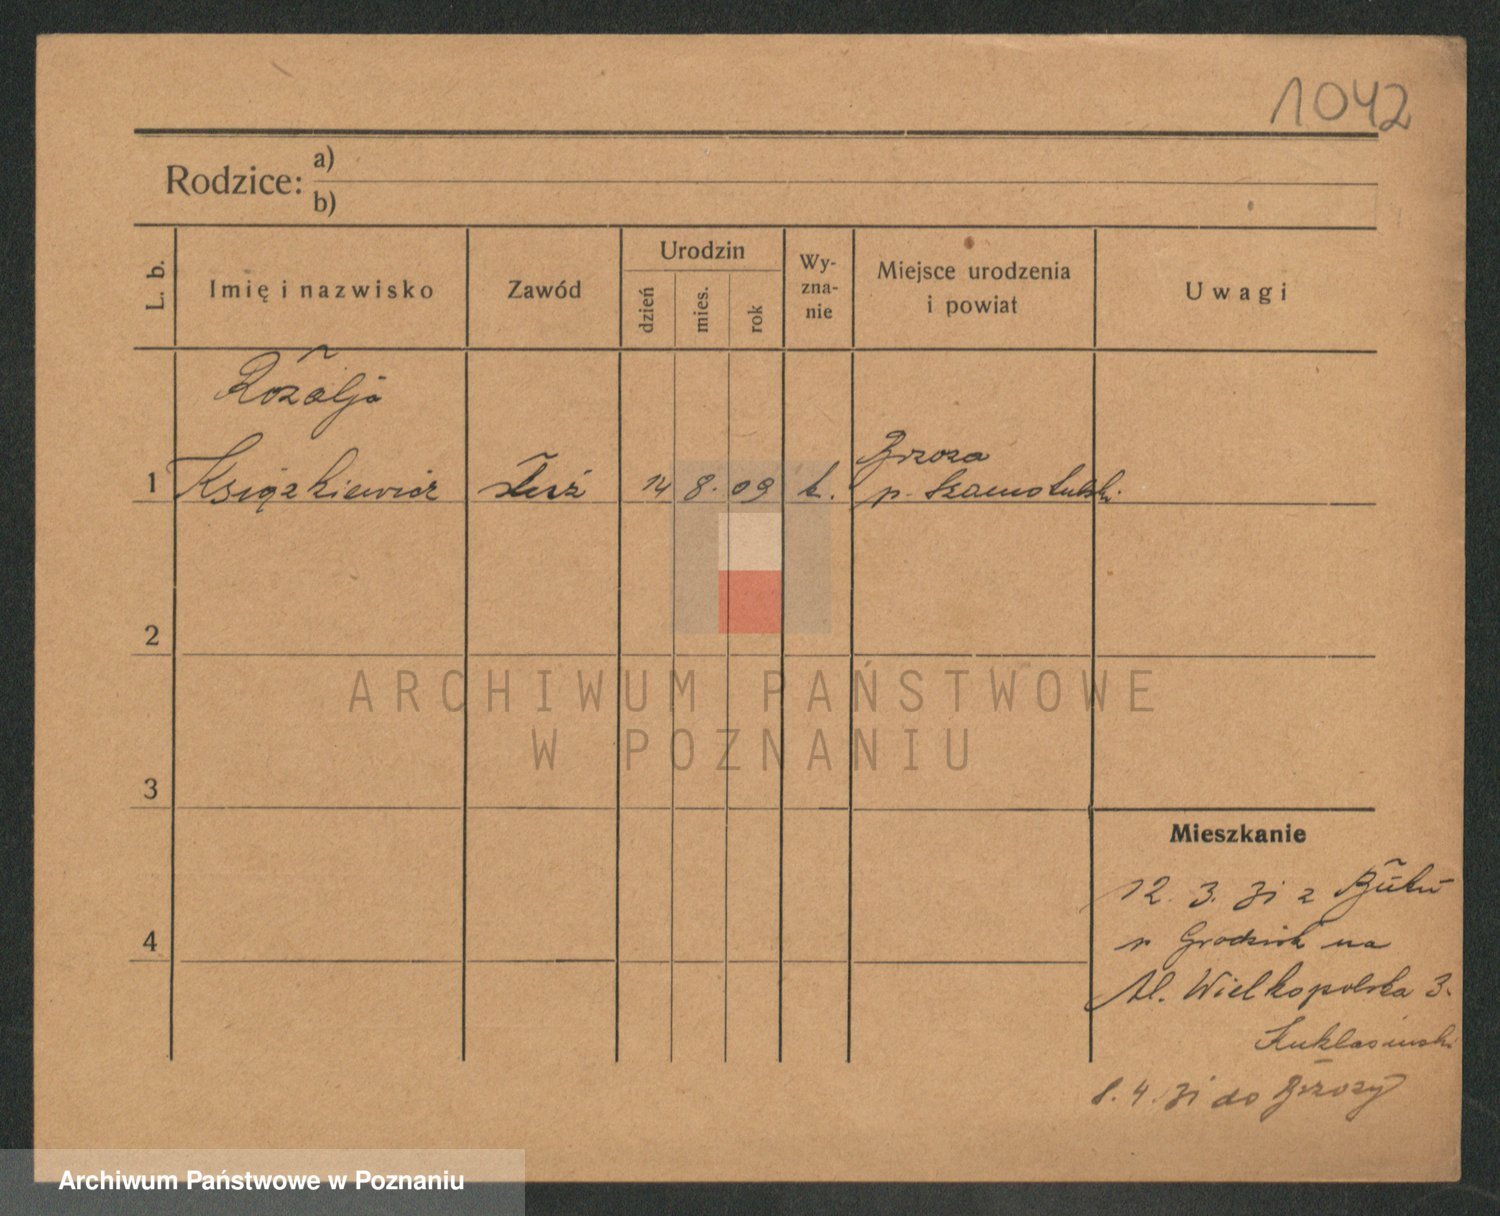 1042
Rodzice: a)
b)
L. b.
Imię i nazwisko
Zawód
Urodzin
dzień
mies.
rok
Wy-
zna-
nie
Miejsce urodzenia
i powiat
Uwagi
Rozalja
1 Książkiewicz służ 14 8. 09 k.
Brzoza
p. Szamotulski
2
3
4
ARCHIWUM PAŃSTWOWE
W POZNANIU
Mieszkanie
12. 3. 31 z Buku
Grodzisk na
Al. Wielkopolska 3.
Kuklasiński
8. 4. 31 do Brzozy
Archiwum Państwowe w Poznaniu